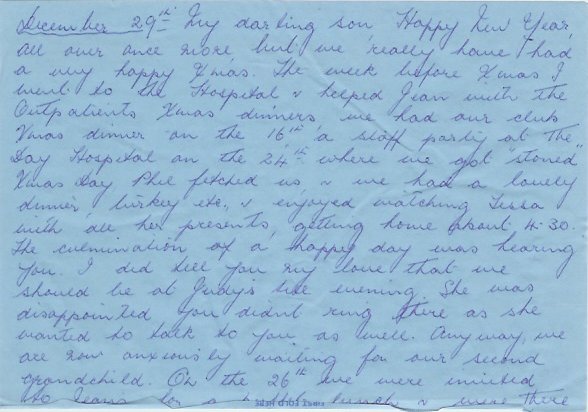 December 29th My darling son Happy New Year
all over once more but we really have had
a very happy Xmas. The week before Xmas I
went to the Hospital & helped Jean with the
Outpatients Xmas dinners, we had our club
Xmas dinner on the 16th a staff party at the
Day Hospital on the 24th where we got "stoned"
Xmas Day Phil fetched us, & we had a lovely
dinner, turkey etc., & enjoyed watching Lissa
with all her presents, getting home about 4.30.
The culmination of a happy day was hearing
you. I did tell you my love that we
should be at Judy's the evening She was
disappointed you didnt ring there as she
wanted to talk to you as well. Anyway, we
are now anxiously waiting for our second
grandchild. On the 26th we were invited
to Jeans for a lunch & were there